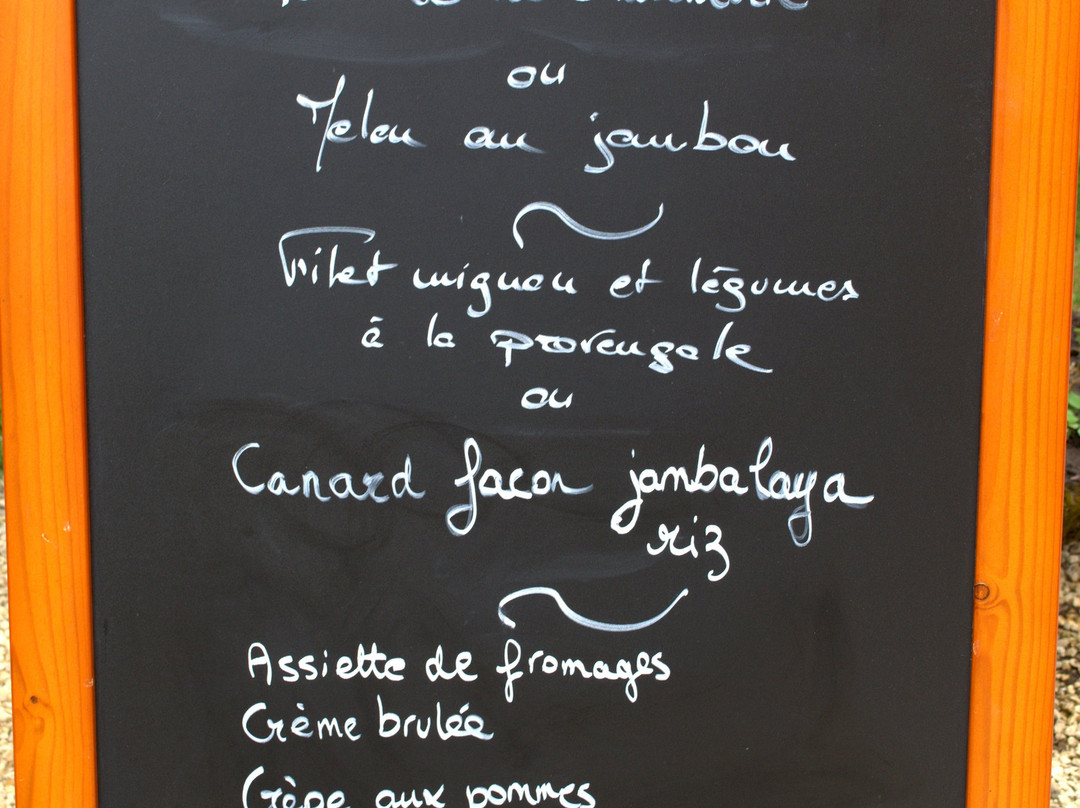 ou
Melon au jambon
Filet mignon et légumes
à la provençale
ou
Canard facon jambalaya
riz
Assiette de fromages
Crème brulée
Crèpe aux pommes